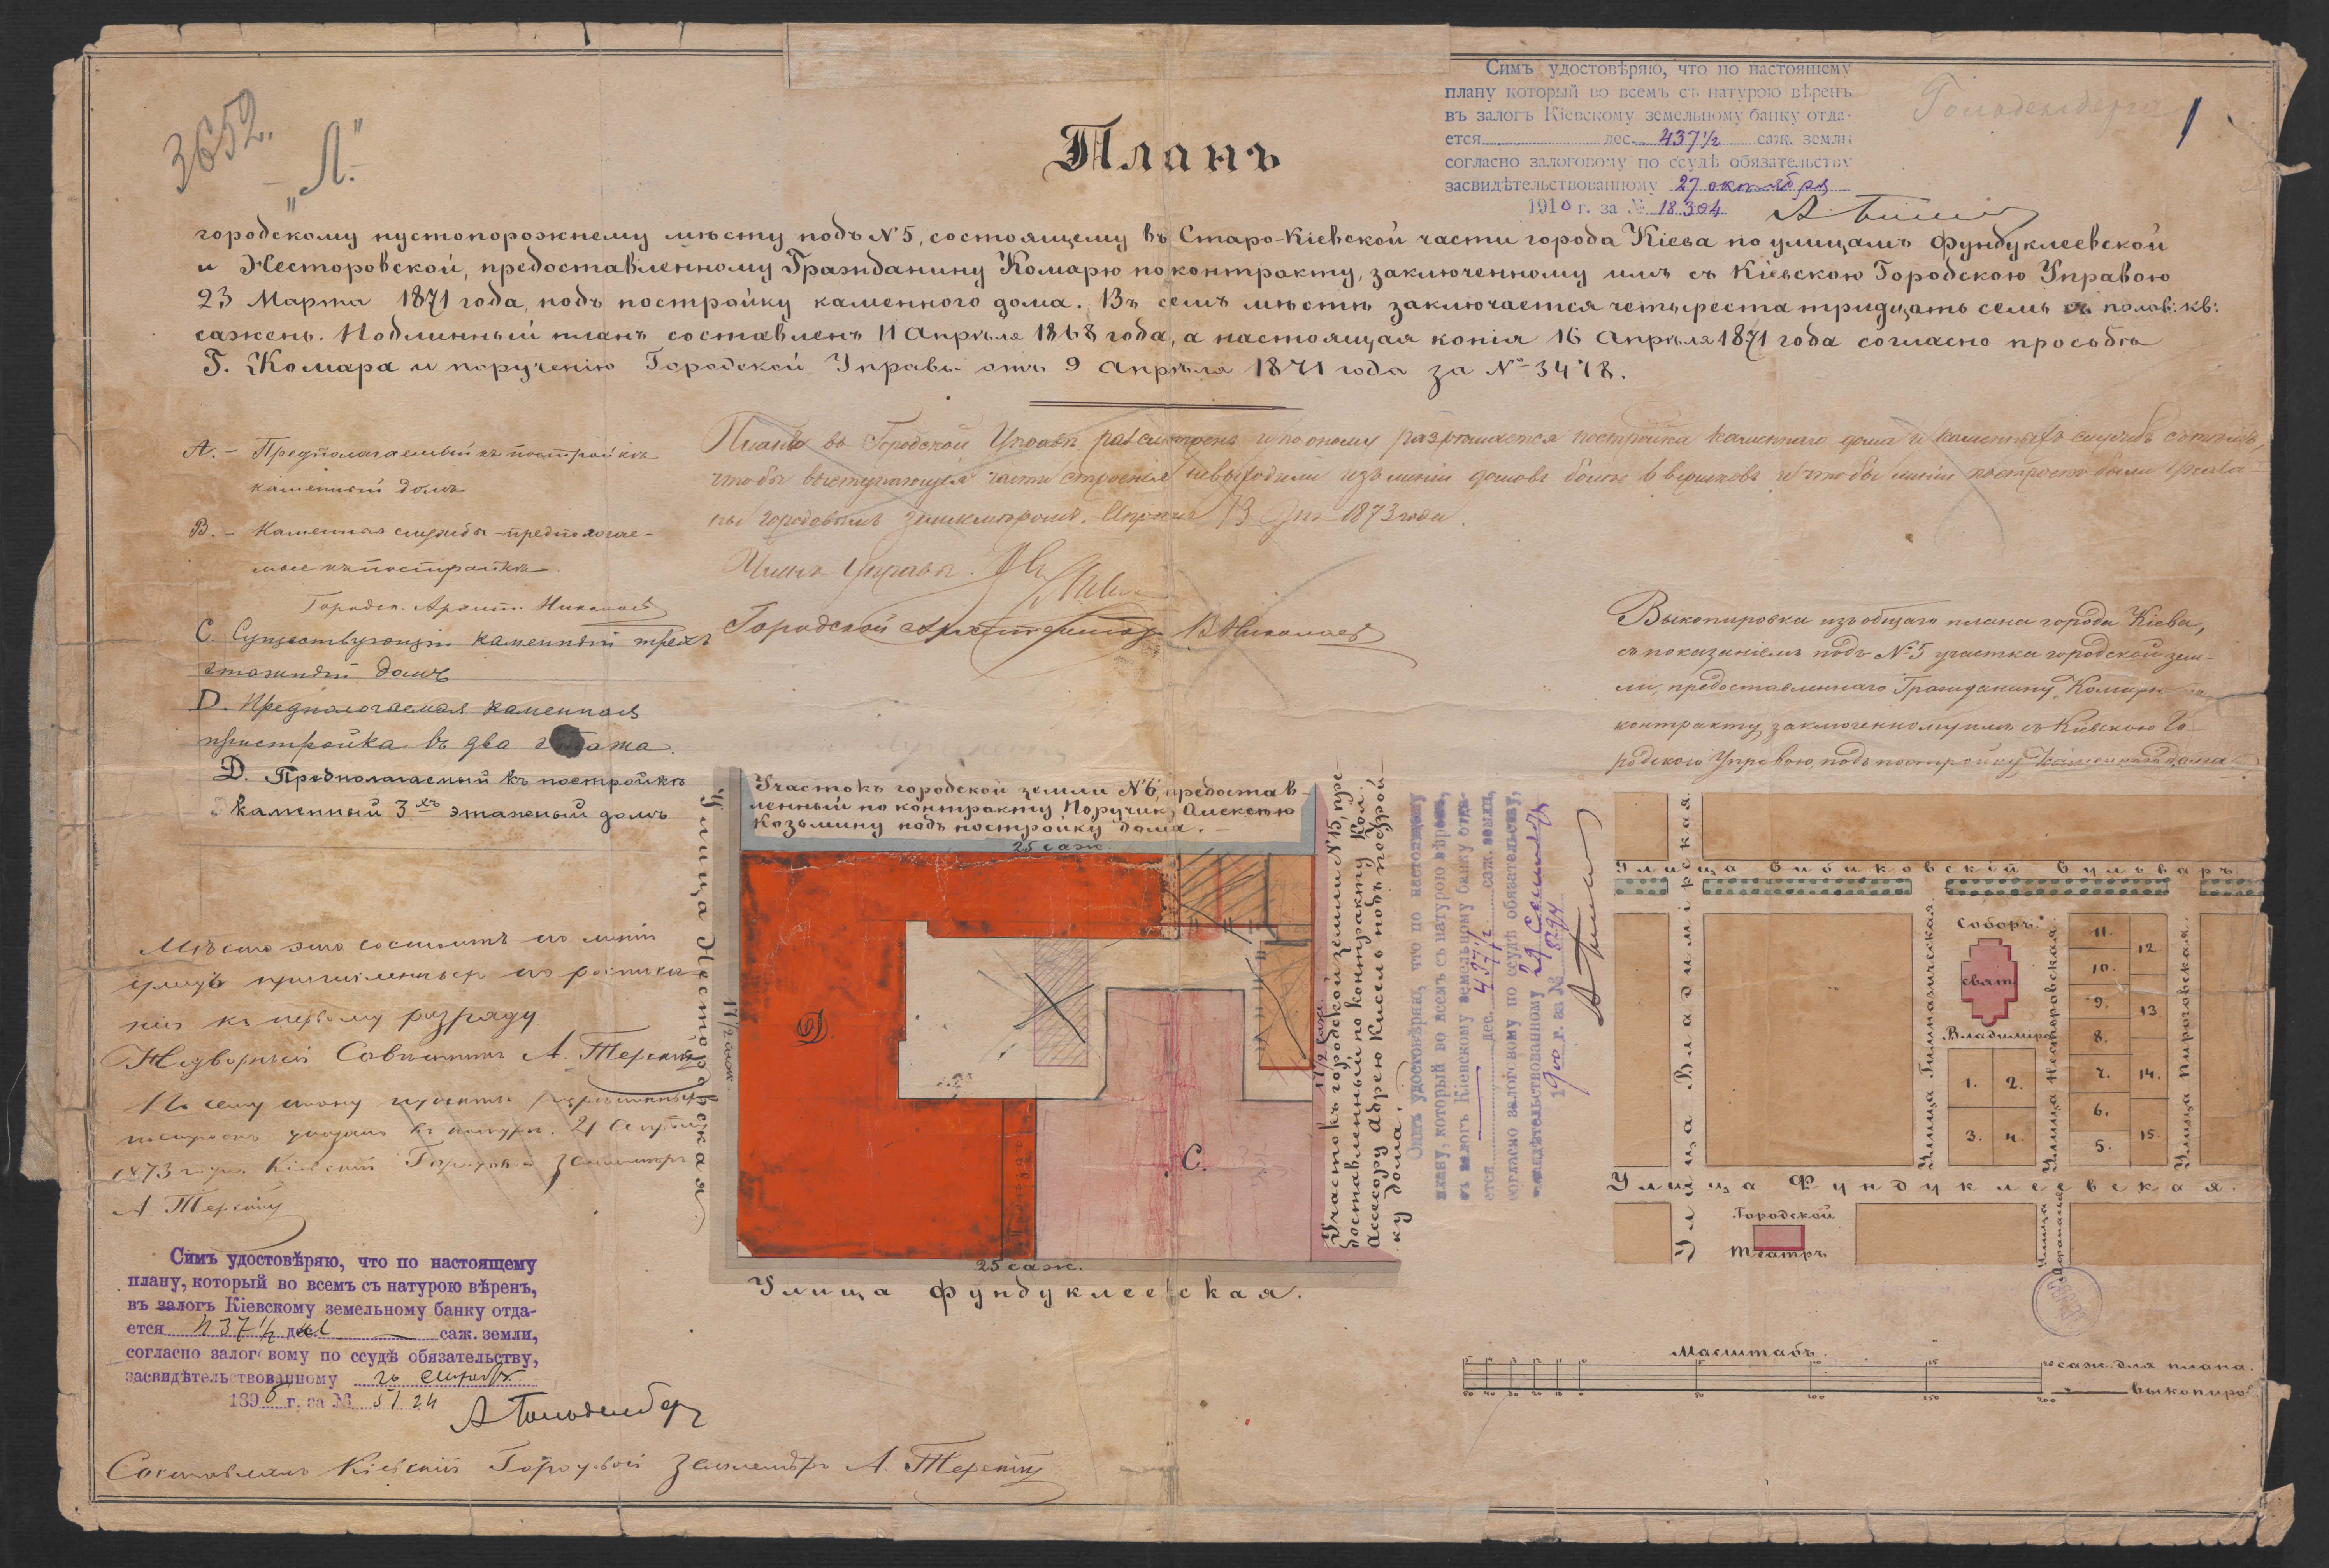 3652.
„Л."
Планъ
Симъ удостовѣряю, что по настоящему
плану который во всемъ съ натурою вѣренъ
въ залогъ Кіевскому земельному банку отда-
ется дес. 437½ саж. земли
согласно залоговому по ссудѣ обязательству
засвидѣтельствованному 27 октября
1910 г. за № 18304
1
городскому пустопорожнему мѣсту подъ №5, состоящему въ Старо-Кіевской части города Кіева по улицамъ Фундуклеевской
и Несторовской, предоставленному Гражданину Комарю по контракту, заключенному имъ съ Кіевскою Городскою Управою
23 Марта 1871 года, подъ постройку каменного дома. Въ семъ мѣстѣ заключается четыреста тридцать семь съ полов: кв:
сажень. Подлинный планъ составленъ 11 Апрѣля 1868 года, а настоящая копія 16 Апрѣля 1871 года согласно просьбѣ
Г. Комара и порученію Городской Управы отъ 9 Апрѣля 1871 года за № 3478.
А. – Предполагаемый къ постройкѣ
каменный домъ
В. – Каменная службы – предполагае-
мые къ постройкѣ
Городск. Архит. Николаевъ
С. Существующій каменный трехъ
этажный домъ
D. Предполагаемая каменная
пристройка въ два этажа.
D. Предполагаемый къ постройкѣ
каменный 3хъ этажный домъ
Планъ въ Городской Управѣ разсмотренъ и по оному разрѣшается постройка каменнаго дома и каменныхъ службъ съ тѣмъ,
чтобы выступающія части строенія невыходили изъ линіи домовъ болѣе 6 вершковъ и чтобы линіи построекъ были указа-
ны городовымъ землемѣромъ. Апрѣля 13 дня 1873 года.
Членъ Управы.
Городской Архитекторъ В Николаевъ
Выкопировка изъ общаго плана города Кіева,
съ показаніемъ подъ №5 участка городской зем-
ли, предоставленнаго Гражданину Комарю по
контракту заключенному имъ съ Кіевскою Го-
родскою Управою, подъ постройку каменнаго дома
Мѣсто это состоитъ по линіи
улицъ причисленныхъ по росписа-
нію къ первому разряду
Надворный Совѣтникъ А. Терскій
По сему плану
построекъ указаны въ натурѣ. 21 Апрѣля
1873 года. Кіевскій Городовой Землемѣръ
А Терскій
Симъ удостовѣряю, что по настоящему
плану, который во всемъ съ натурою вѣренъ,
въ залогъ Кіевскому земельному банку отда-
ется 437½ дес. — саж. земли,
согласно залоговому по ссудѣ обязательству,
засвидѣтельствованному
1896 г. за № 5124
А Гольденберг
Составлялъ Кіевскій Городовой Землемѣръ А. Терскій
Участокъ городской земли №6, предостав-
ленный по контракту Поручику Алексѣю
Козьмину подъ постройку дома. –
25 саж.
Улица Несторовская.
17½ саж.
D.
С.
25 саж.
Улица Фундуклеевская.
17½ саж.
Участокъ городской земли №15, пре-
доставленный по контракту Кол.
Ассесору Андрею Кисель подъ построй-
ку дома.
Симъ удостовѣряю, что по настоящему
плану, который во всемъ съ натурою вѣренъ,
въ залогъ Кіевскому земельному банку отда-
ется дес. 437½ саж. земли,
согласно залоговому по ссудѣ обязательству,
засвидѣтельствованному
1900 г. за № 8294
Улица Бибиковскій Бульваръ
Улица Владимірская
Улица Гимназическая
Соборъ
Свят.
Владиміра
Улица Несторовская
Улица Пироговская.
11.
12
10.
9.
13
8.
7.
14.
6.
15.
5.
1.
2.
3.
4.
Улица Фундуклеевская.
Городской
Театръ
Улица
Масштабъ.
5 10 15 20 саж. для плана.
50 40 30 20 10 0 50 100 150 200 — выкопиров.